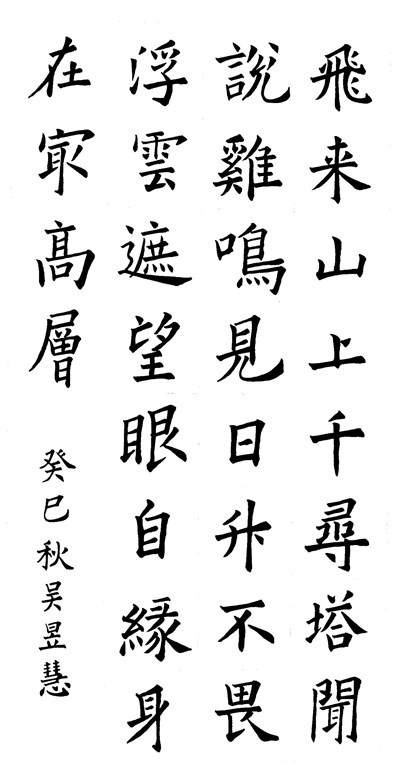 飛来山上千尋塔聞
說雞鳴見日升不畏
浮雲遮望眼自緣身
在冣高層
癸巳秋吴昱慧